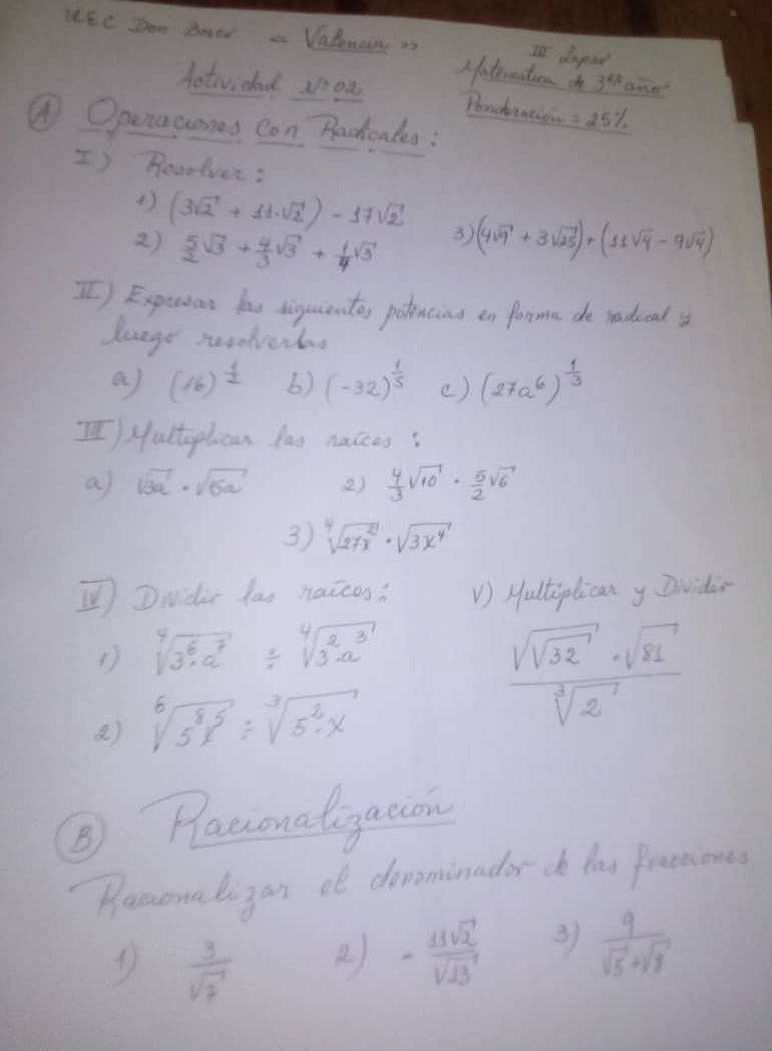 U.E.C Don Bosco "Valencia"
III Lapso
Matemática de 3er año
Actividad Nº 02
Ponderación = 25%
A Operaciones con Radicales:
I) Resolver:
1) (3√2 + 11·√2) - 17√2
2) 5/2 √3 + 4/3 √3 + 1/4 √3
3) (4√9 + 3√25) + (11√4 - 9√4)
II) Expresar las siguientes potencias en forma de radical y
luego resolverlas
a) (16)^(1/2) b) (-32)^(1/5) c) (27a⁶)^(1/3)
III) Multiplicar las raíces:
a) √3a · √15a 2) 4/3 √10 · 5/2 √6
3) ⁴√27x² · √3x⁴
IV) Dividir las raíces:
1) ⁴√3⁶·a⁷ ÷ ⁴√3²·a³
2) ⁶√5⁸x⁵ ÷ ³√5²·x
V) Multiplicar y Dividir
√√32 · √81
³√2
B Racionalización
Racionalizar el denominador de las fracciones
1) 3/√7 2) - 11√2/√13 3) 9/√5+√8